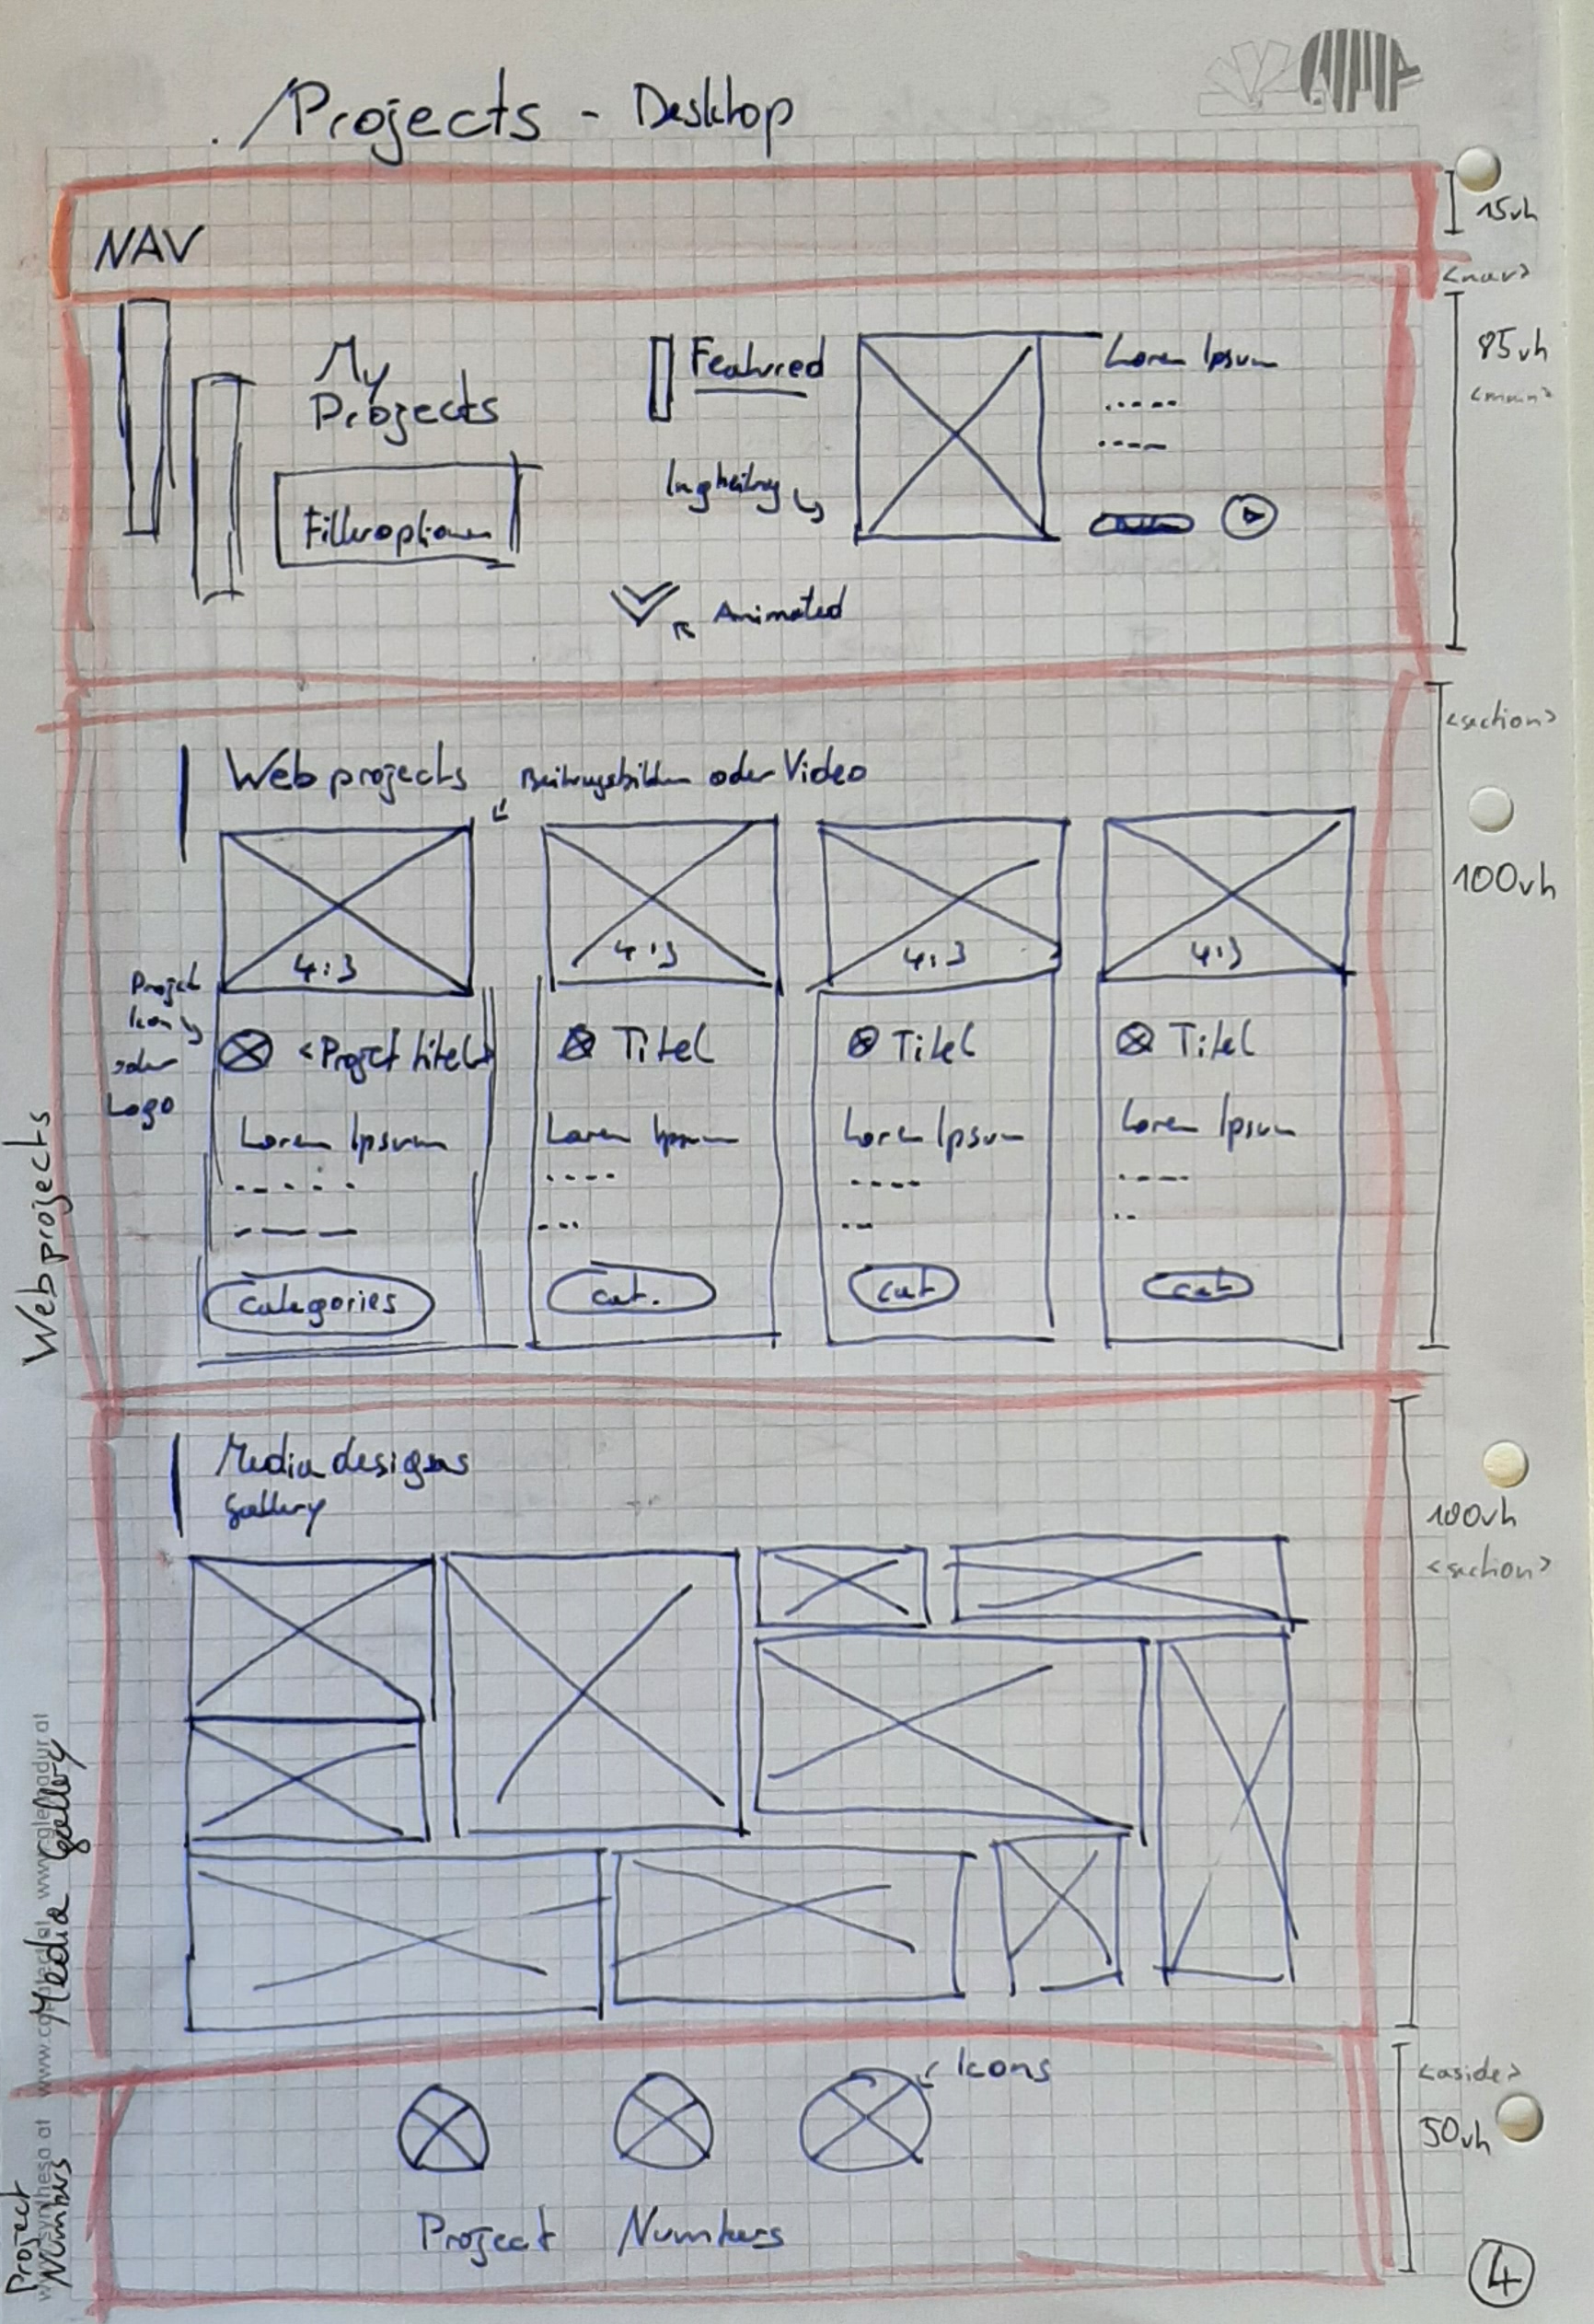 ./Projects - Desktop
NAV
15vh
<nav>
My
Projects
Filteroptionen
Featured
Lorem Ipsum
85vh
<main>
Animated
<section>
Web projects
oder Video
100vh
4:3
4:3
4:3
4:3
Projekt
Icon
oder
Logo
<Projcttitel>
Titel
Titel
Titel
Lorem Ipsum
Lorem Ipsum
Lorem Ipsum
Lorem Ipsum
categories
cat.
cat
cat
Webprojects
Media designs
gallery
100vh
<section>
Media gallery
Icons
<aside>
50vh
Project Numbers
Project
Numbers
4